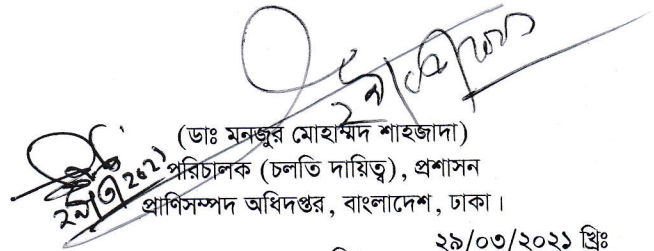 (ডাঃ মনজুর মোহাম্মদ শাহজাদা)
পরিচালক (চলতি দায়িত্ব), প্রশাসন
প্রাণিসম্পদ অধিদপ্তর, বাংলাদেশ, ঢাকা।
২৯/০৩/২০২১ খ্রিঃ